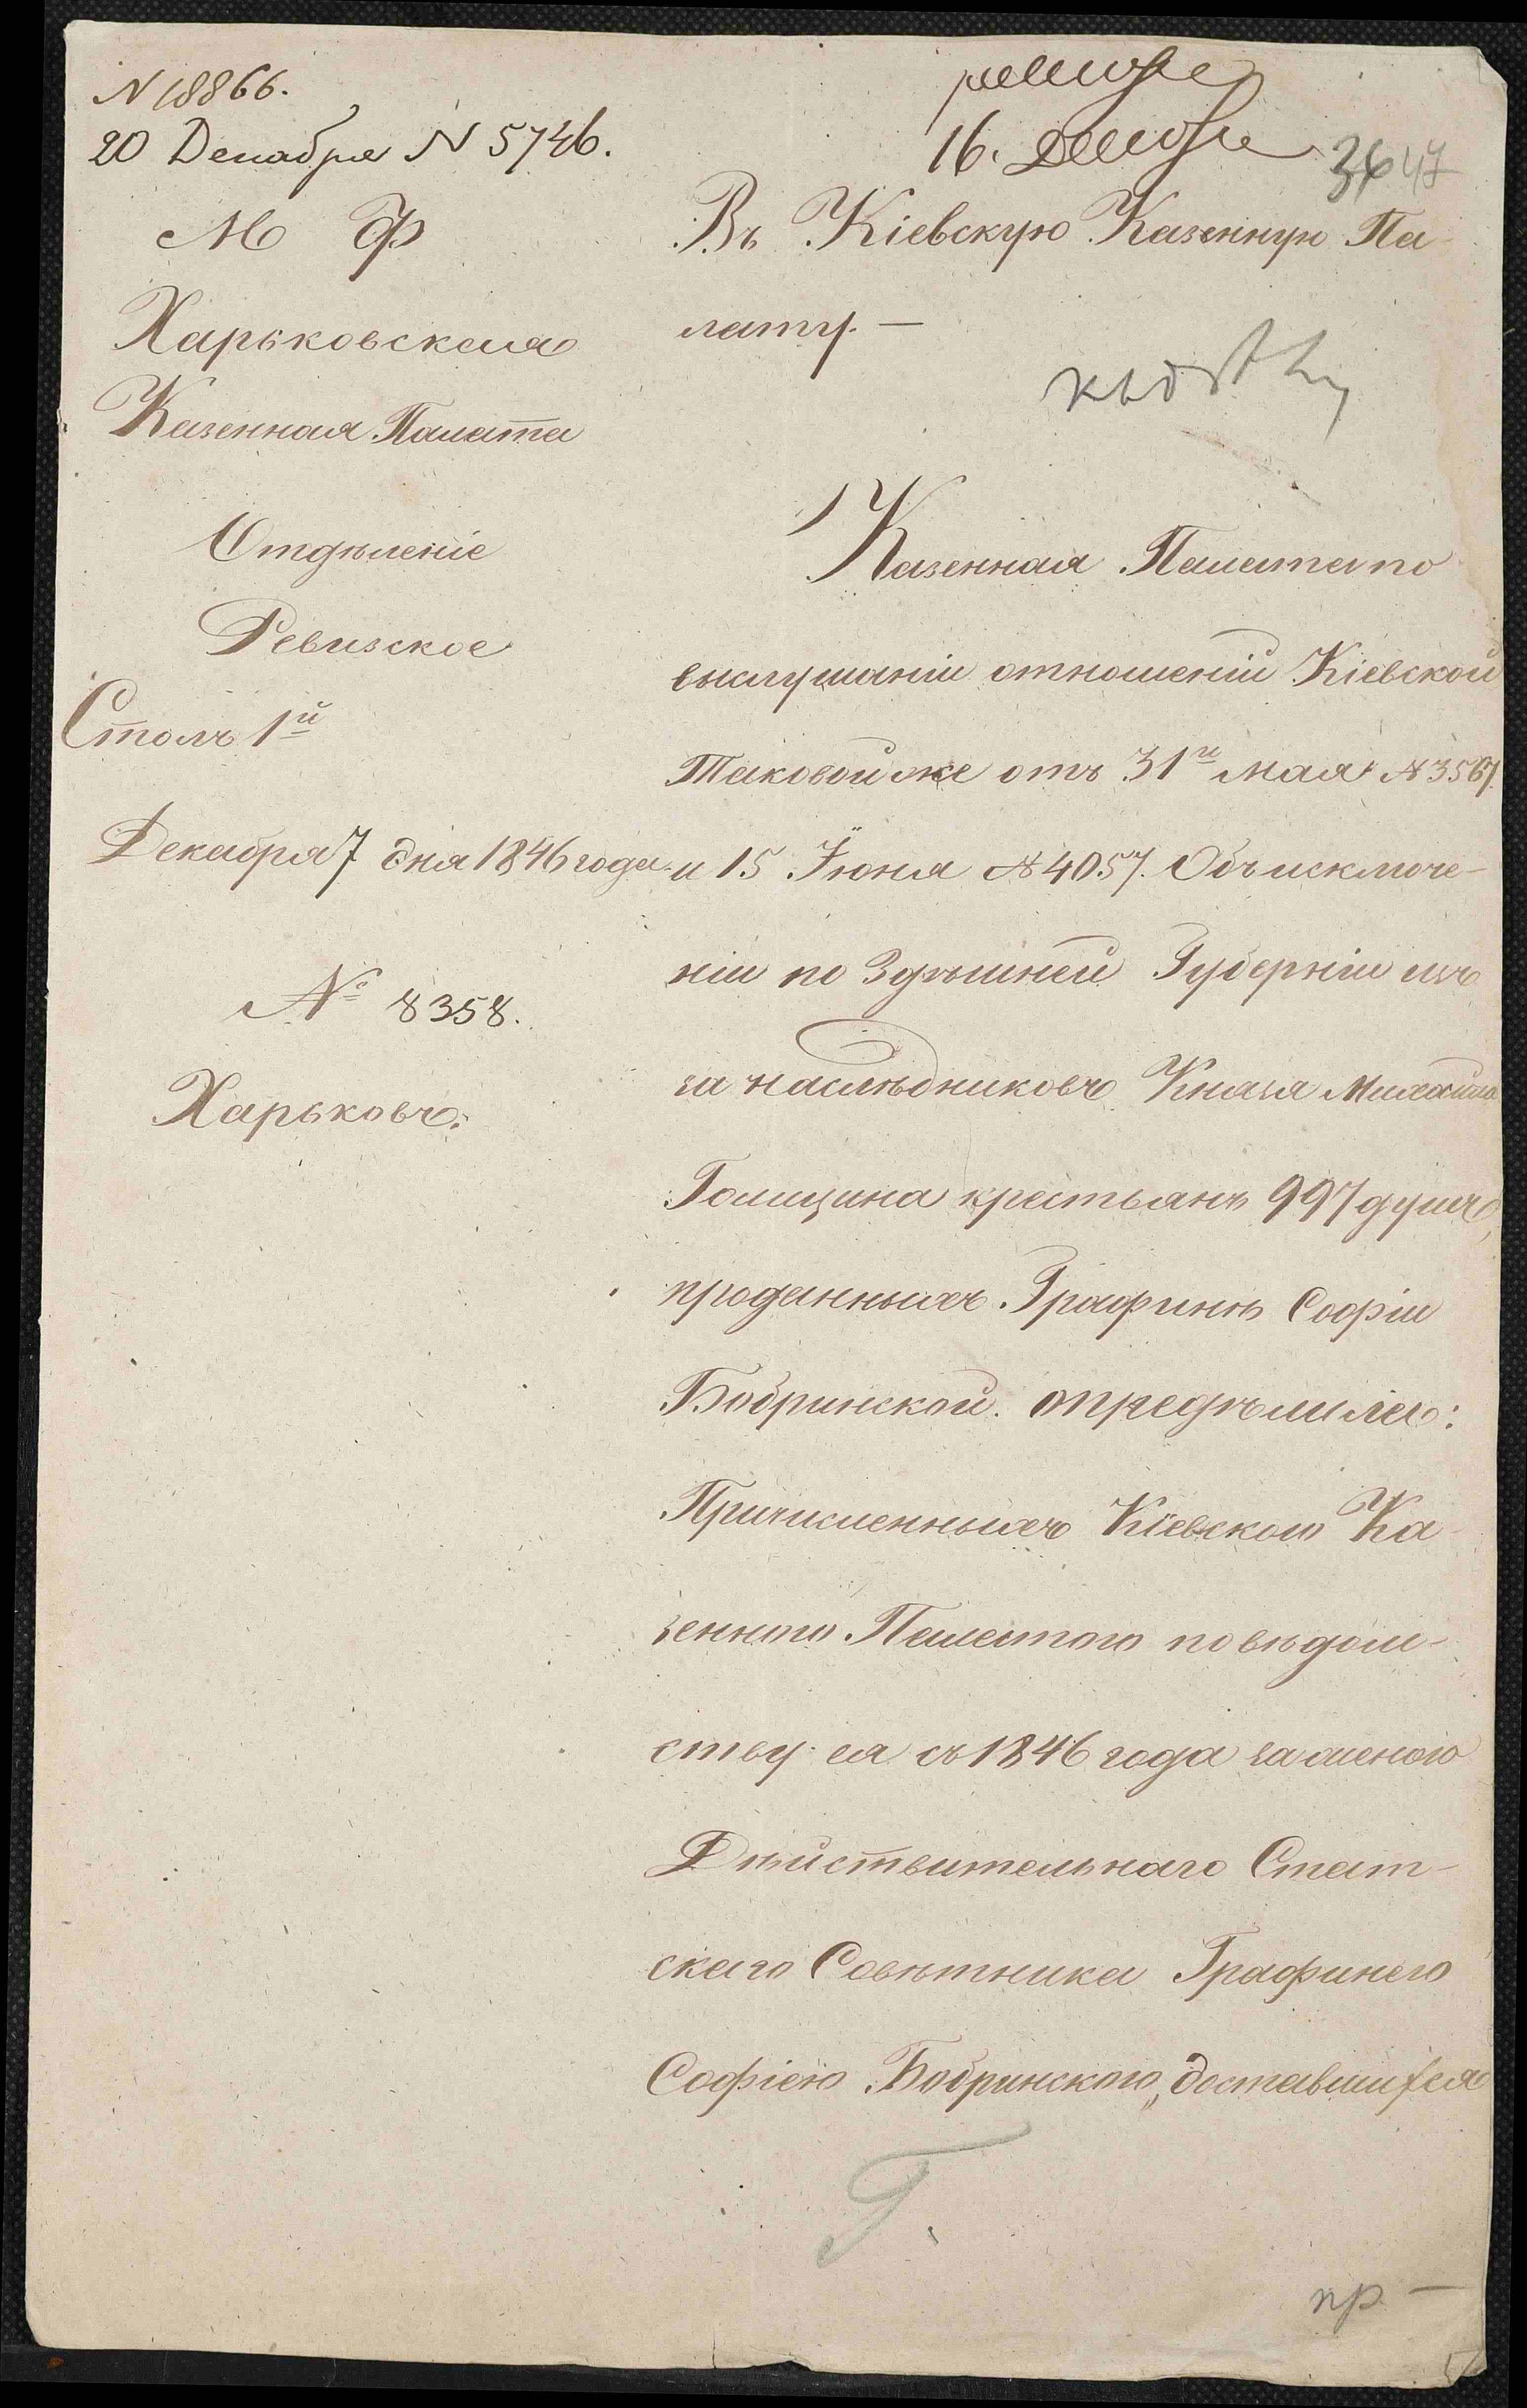 N 18866.
20 Декабря N 5746.
М Ф
Харьковская
Казенная Палата
Отдѣленіе
Ревизское
Столъ 1й
Декабря 7 дня 1846 года
№ 8358.
Харьковъ.
16.
36 47
Въ Кіевскую Казенную Па-
лату. —
Казенная Палата по
выслушаніи отношеній Кіевской
Таковой же отъ 31го Мая № 3567.
и 15 Іюня № 4057. Объ исключе-
ніи по Здѣшней Губерніи изъ
за наслѣдниковъ Князя Михаила
Голицина крестьянъ 997 душъ,
проданныхъ Графинѣ Софіи
Бобринской. опредѣлила:
Причисленныхъ Кіевскою Ка-
зенною Палатою по вѣдом-
ству ея съ 1846 года за женою
Дѣйствительнаго Стат-
скаго Совѣтника Графинею
Софіею Бобринскою, доставшихся
Г.
пр —